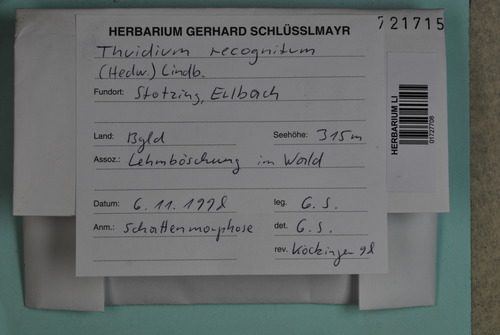 HERBARIUM GERHARD SCHLÜSSLMAYR
721715
Thuidium recognitum
(Hedw.) Lindb.
Fundort: Stotzing, Edlbach
Land: Bgld Seehöhe: 315m
Assoz.: Lehmböschung im Wald
Datum: 6. 11. 1998 leg. G. S.
Anm.: Schattenmorphose det. G. S.
rev. Köckinger 98
HERBARIUM LI
01727708